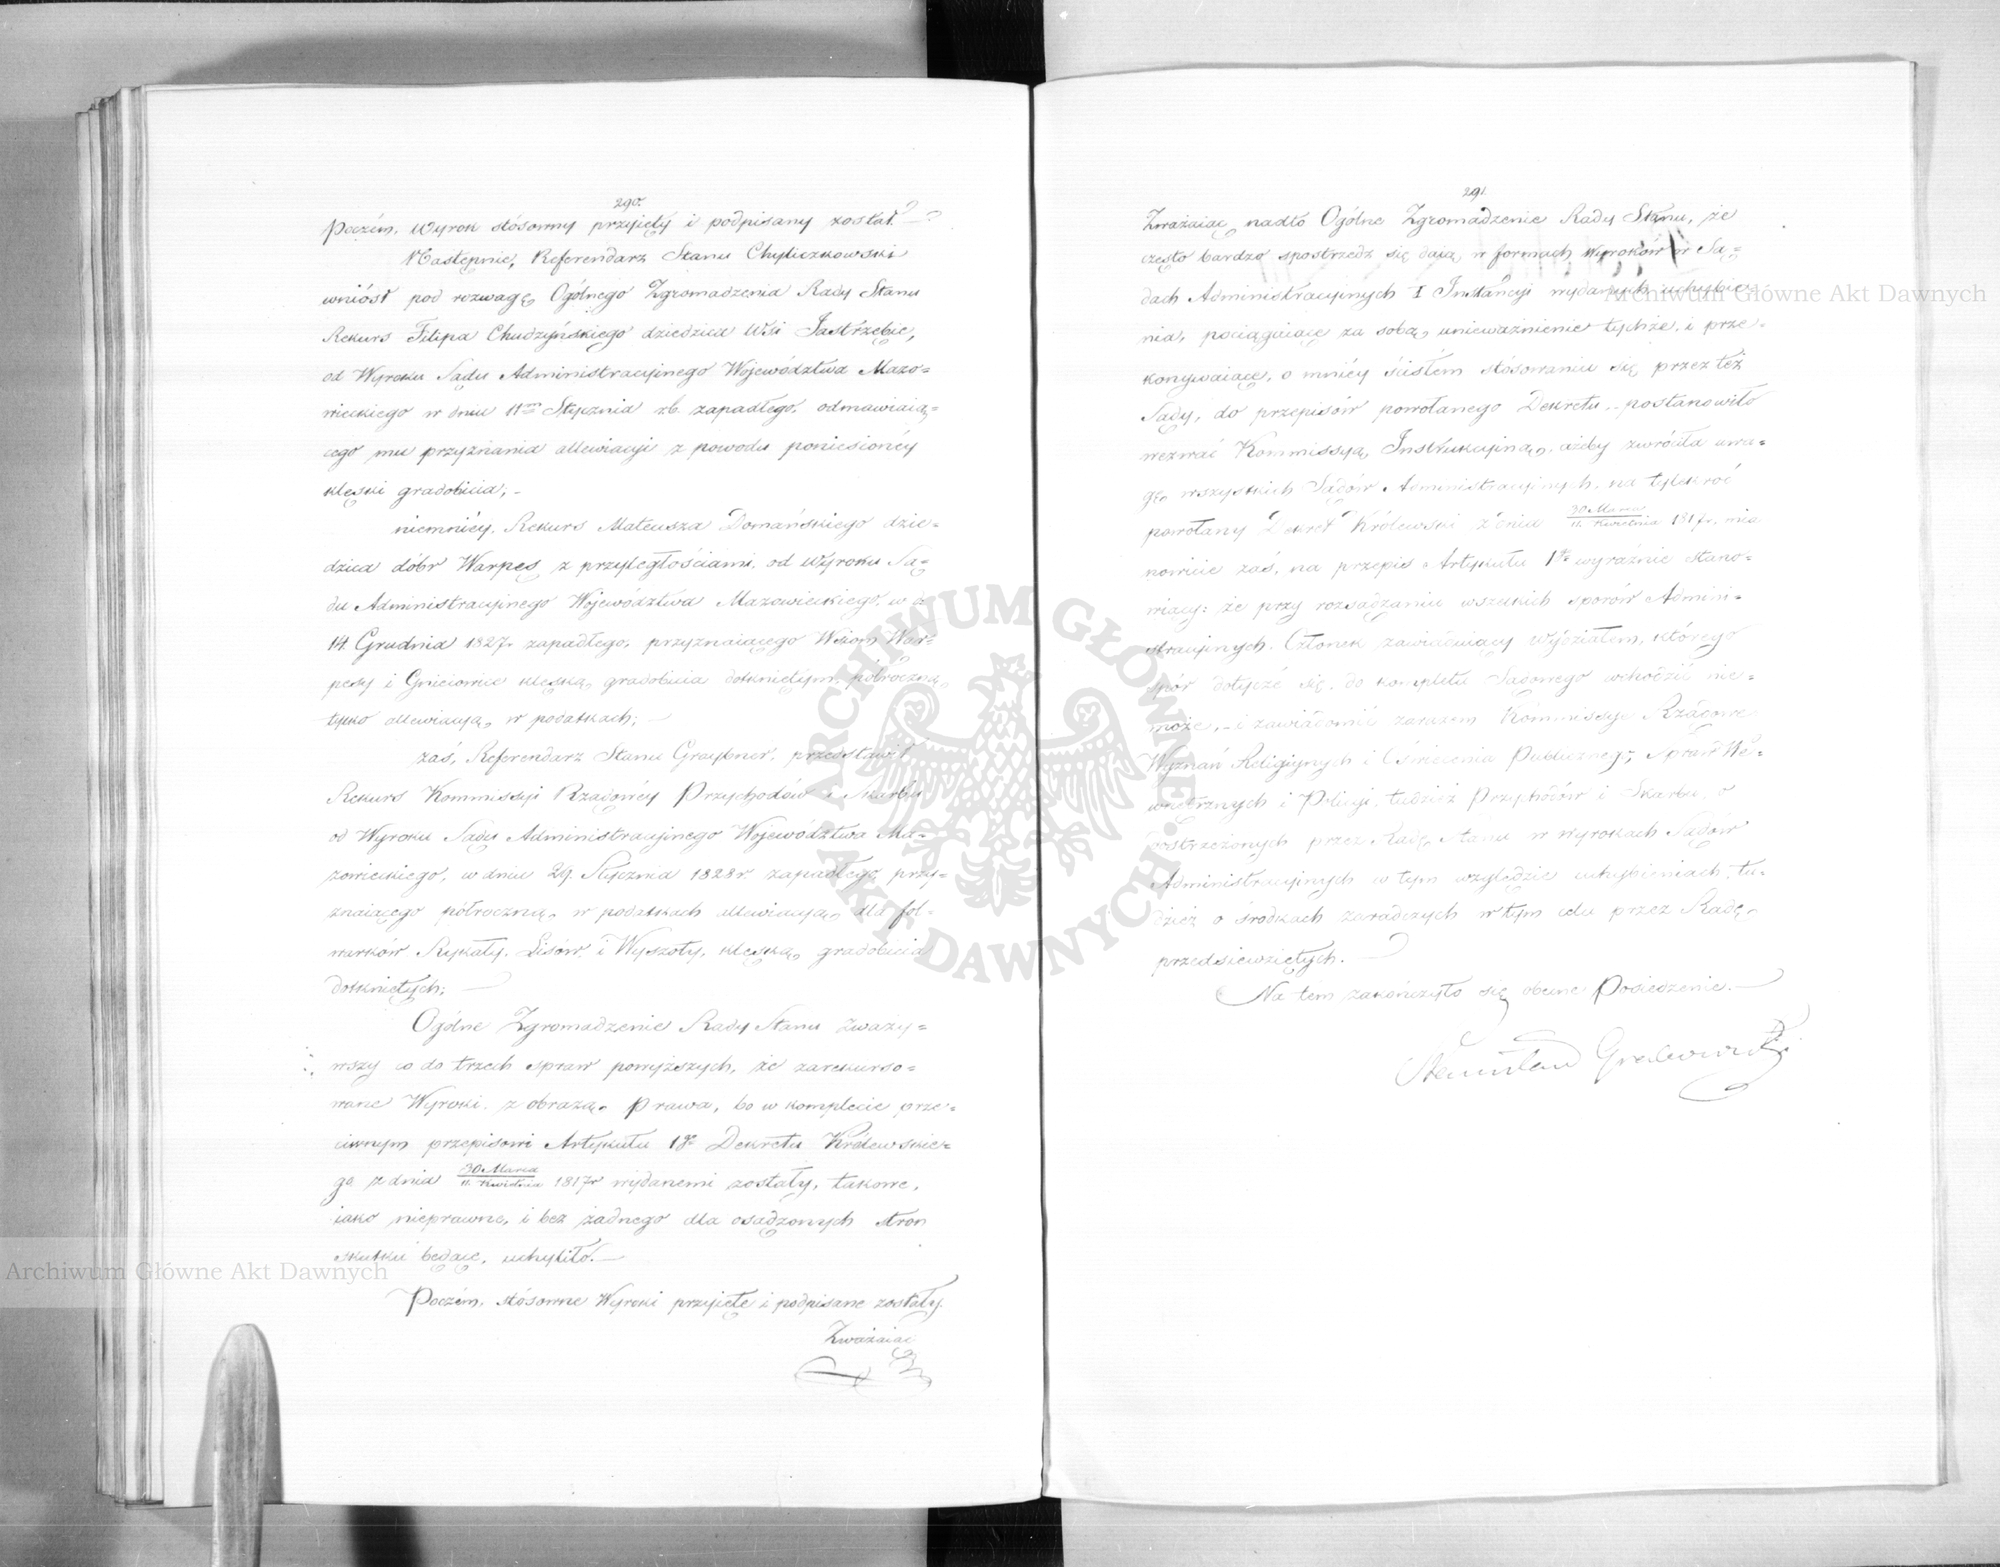 290.
Poczém, Wyrok stósowny przyięty i podpisany został.
Następnie, Referendarz Stanu Chyliczkowski
wniósł pod rozwagę Ogólnego Zgromadzenia Rady Stanu
Rekurs Filipa Chudzyńskiego dziedzica Wsi Jastrzębie,
od Wyroku Sądu Administracyinego Województwa Mazo=
wieckiego w dniu 11m Stycznia r.b. zapadłego, odmawiaią=
cego mu przyznania allewiacyi z powodu poniesionéy
klęski gradobicia; –
niemniéy, Rekurs Mateusza Domańskiego dzie=
dzica dóbr Warpęs z przyległościami, od Wyroku Są=
du Administracyinego Województwa Mazowieckiego, w d.
14. Grudnia 1827r zapadłego, przyznaiącego Wsiom War=
pęsy i Gnieciowice klęską gradobicia dotkniętym, półroczną
tylko allewiacyą w podatkach; –
zaś, Referendarz Stanu Graybner, przedstawił
Rekurs Kommissyi Rządowéy Przychodów i Skarbu
od Wyroku Sądu Administracyinego Województwa Ma=
zowieckiego, w dniu 29. Stycznia 1828r. zapadłego, przy=
znaiącego półroczną w podatkach allewiacyą dla fol=
warków Rykały, Lisów, i Wyszoty, klęską gradobicia
dotkniętych; –
Ogólne Zgromadzenie Rady Stanu zważy=
wszy co do trzech spraw powyższych, że zarekurso=
wane Wyroki, z obrazą Prawa, bo w komplecie prze=
ciwnym przepisowi Artykułu 1go Dekretu Królewskie=
go z dnia 30 Marca / 11. Kwietnia 1817r wydanemi zostały, takowe,
iako nieprawne, i bez żadnego dla osądzonych stron
skutku będące, uchyliło. –
Poczém, stósowne Wyroki przyięte i podpisane zostały.
Zważaiąc
291.
Zważaiąc nadto Ogólne Zgromadzenie Rady Stanu, że
często bardzo spostrzedz się daią w formach Wyroków w Są=
dach Administracyinych I Instancyi wydanych uchybie=
nia, pociągaiące za sobą unieważnienie tychże, i prze=
konywaiące, o mniéy ścisłém stósowaniu się przez też
Sądy, do przepisów powołanego Dekretu, – postanowiło
wezwać Kommissyą Instrukcyiną, ażeby zwróciła uwa=
gę wszystkich Sądów Administracyinych, na tylekroć
powołany Dekret Królewski z dnia 30 Marca / 11. Kwietnia 1817r, mia
nowicie zaś, na przepis Artykułu 1go wyraźnie stano=
wiący: że przy rozsądzaniu wszelkich sporów Admini=
stracyinych, Członek zawiaduiący Wydziałem, którego
spór dotycze się, do kompletu Sądowego wchodzić nie=
może, – i zawiadomić zarazem Kommissye Rządowe
Wyznań Religiynych i Oświecenia Publicznego, Spraw We=
wnętrznych i Policyi, tudzież Przychodów i Skarbu, o
dostrzeżonych przez Radę Stanu w Wyrokach Sądów
Administracyinych w tym względzie uchybieniach, tu=
dzież o środkach zaradczych w tym celu przez Radę
przedsięwziętych. –
Na tém zakończyło się obecne Posiedzenie. –
Stanisław Grabowski
Archiwum Główne Akt Dawnych
Archiwum Główne Akt Dawnych
ARCHIWUM GŁÓWNE AKT DAWNYCH